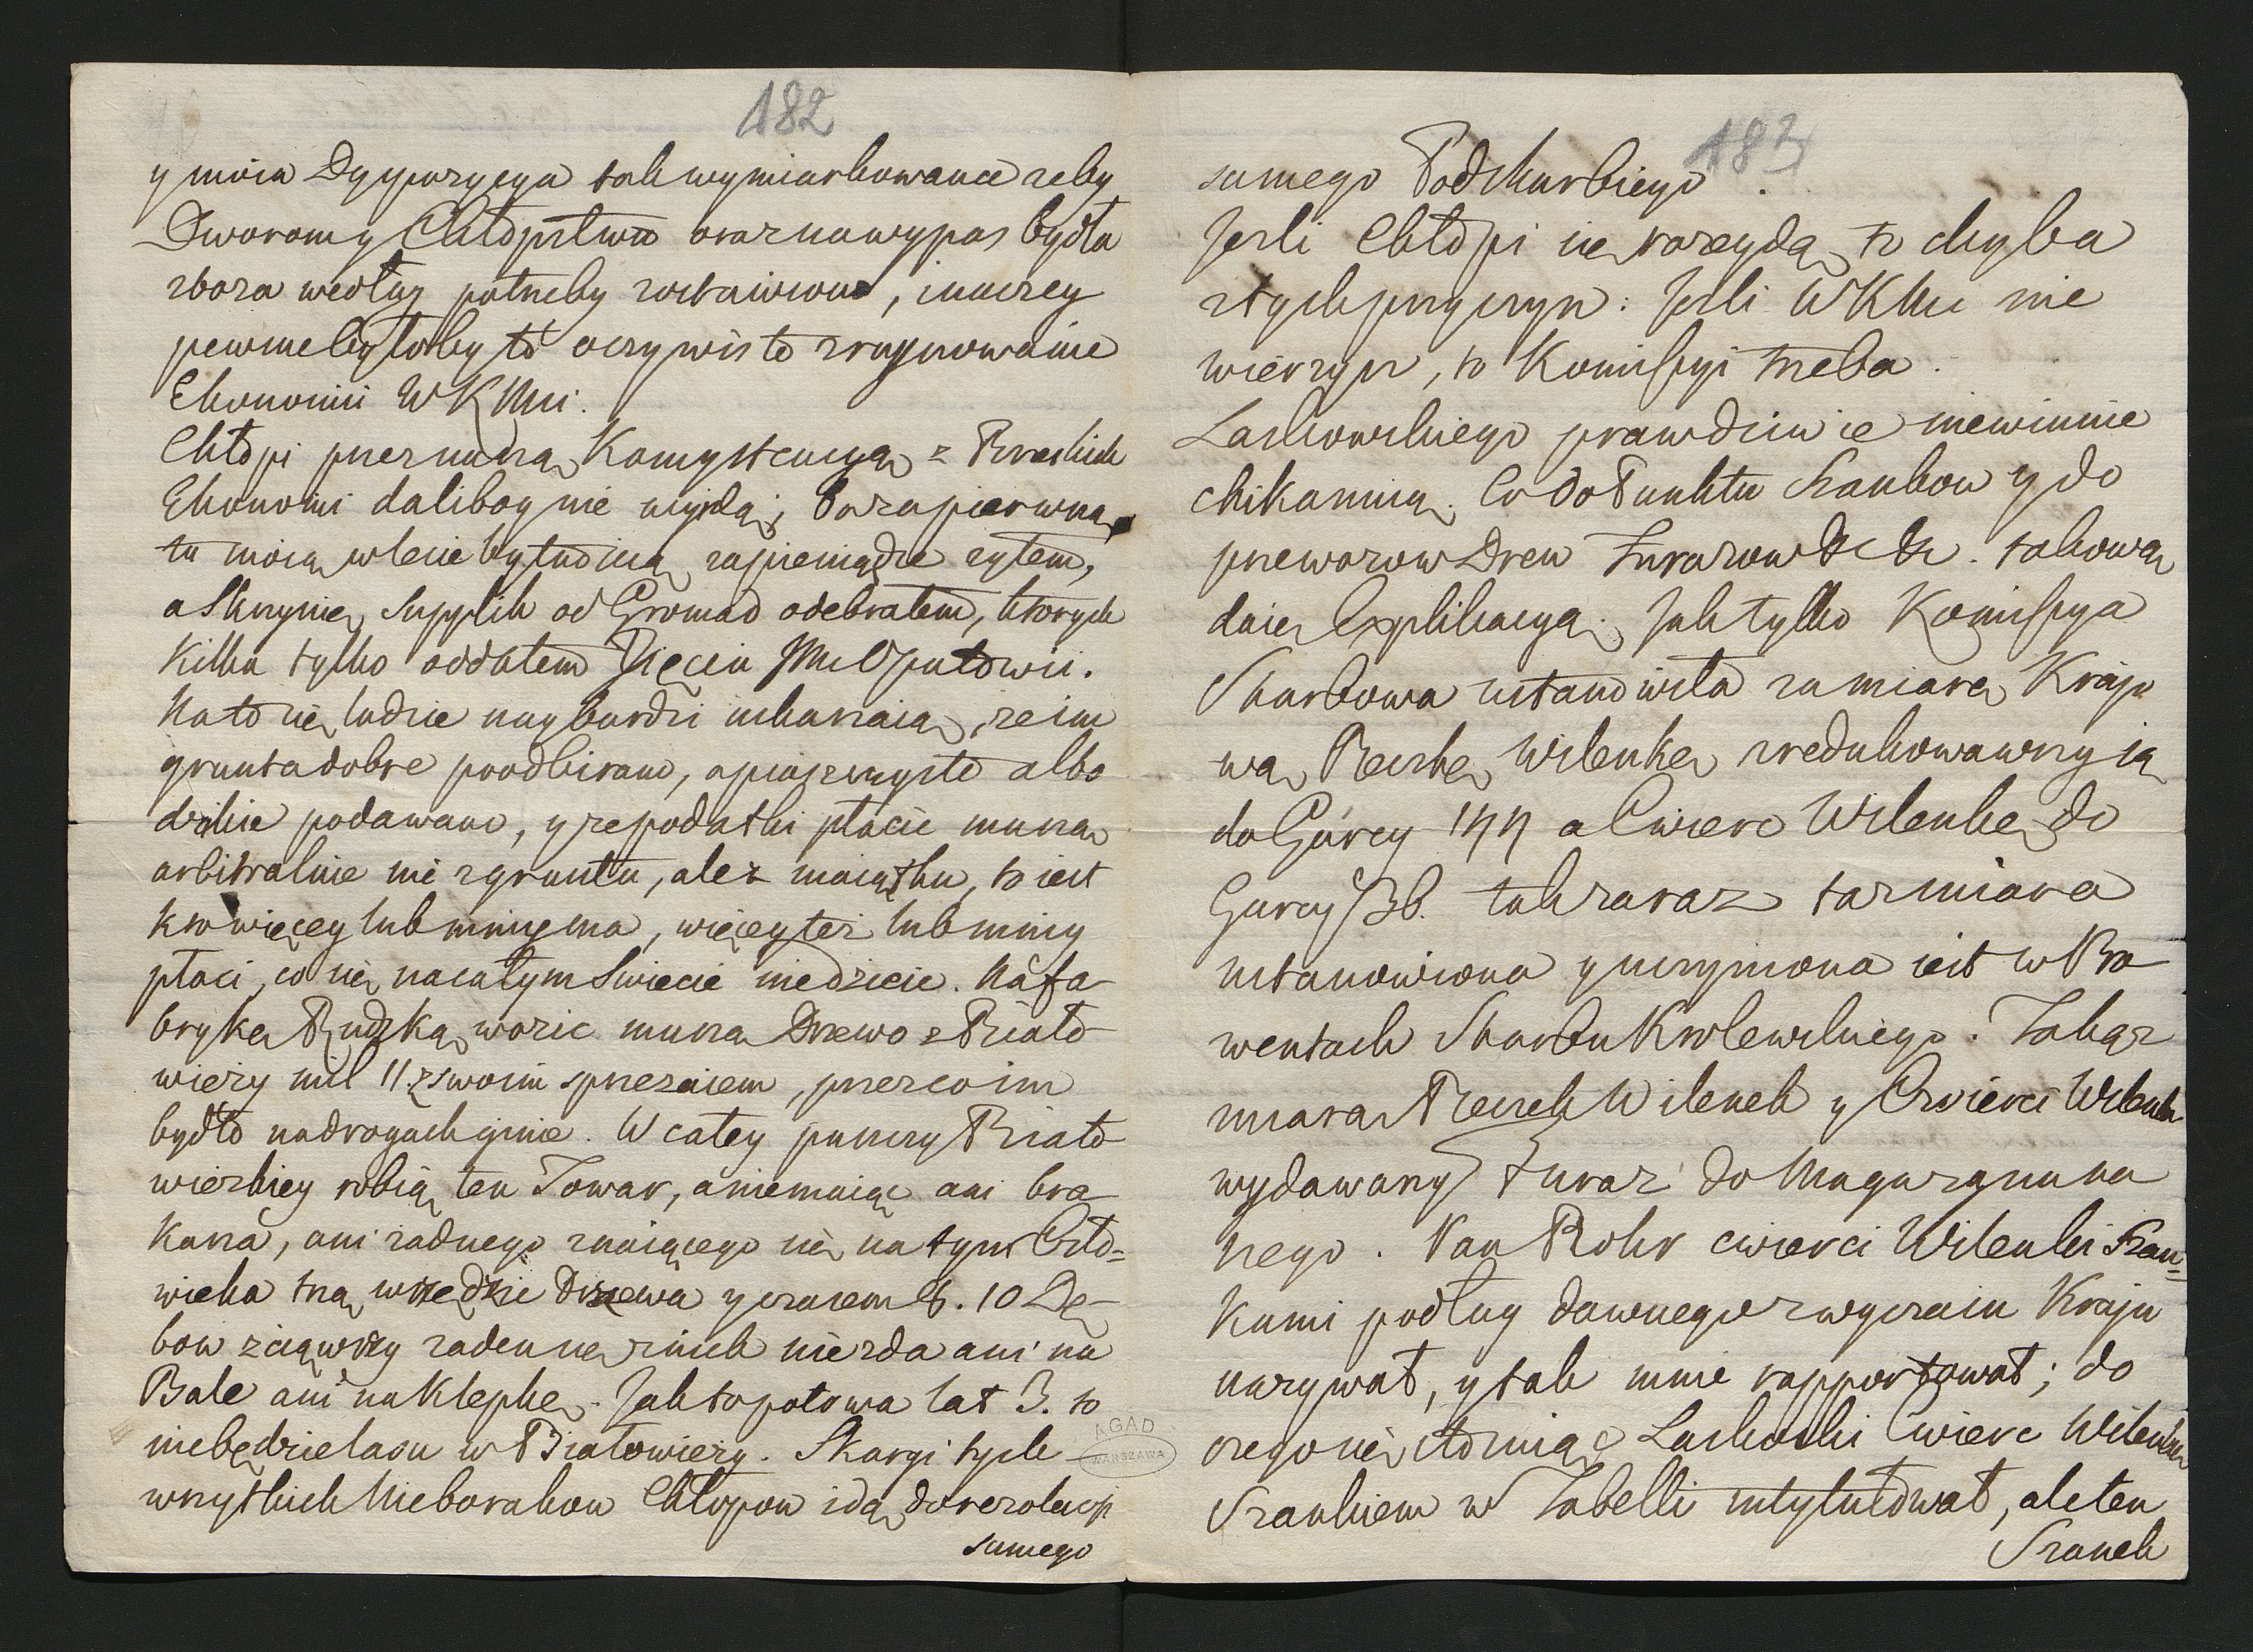 182
y moia Dyspozycya tak wymiarkowane zeby
Dworom y Chłopstwu oraz na wypas bydła
zboza według potrzeby zostawiono, inaczey
pewnie byłoby to oczywiste zruynowanie
Ekonomii W K Mci.
Chłopi przez nuzną Kompetencyą z Brzeskich
Ekonomi dalibog nie wyydą; bo za pierwszą
tu moią w lecie bytnoscią za pieniądze zyłem,
a Skrzynię Supplik od Gromad odebrałem, ktorych
kilka tylko oddałem Xięciu Jmci Opatowi.
Na to się ludzie naybardzi uskarzaią, ze im
grunta dobre poodbirano, a piaszczyste albo
dzikie podawano, y ze podatki płacic muszą
arbitralnie nie z gruntu, ale z maiątku, to iest
kto więcey lub mniey ma, więcey tez lub mniey
płaci, co się na całym Swiecie nie dzieie. Na fa-
brykę Rudzką wozic muszą Drzewo z Biało
wiezy mil 11. z swoim sprzezaiem, przez co im
bydło na drogach ginie. W całey puszczy Biało
wiezkiey robią ten Towar, a nie maiąc ani bra
karza, ani zadnego znaiącego się na tym Czło=
wieka tną wszędzie Drzewa y czasem 6. 10 Dę-
bow ściąwszy zaden się z nich nie zda ani na
Bale ani na Klepkę. Jak to potrwa lat 3. to
nie będzie lasu w Białowiezy. Skargi tych
wszystkich Nieborakow Chłopow idą do rezolucji
samego
AGAD
WARSZAWA
183
samego Podskarbiego.
Jesli Chłopi się rozeydą to chyba
z tych przyczyn: Jesli W K Mc nie
wierzysz, to Komissyi trzeba.
Laskowskiego prawdziwie niewinnie
chikanuią. Co do Punktu Szankow y do
przewozow Drew Furazow &c &c. takową
daię Explikacyą. Jak tylko Komissya
Skarbowa ustanowiła za miarę Krajo
wą Beczkę Wilenkę zredukowawszy ią
do Garcy 144 a Cwierc Wilenkę do
Garcy 36. tak zaraz taz miara
ustanowiona y uczyniona iest w Pro
wentach Skarbu Krolewskiego. Takąz
miarą Beczek Wilenek y Cwierci Wilenek
wydawany Furaz do Magazynu na
nego. Van Rohr cwierci Wilenki Szan=
kami podług dawnego zwyczaiu Kraju
nazywał, y tak mnie rapportował; do
czego się stosuiąc Laskoski Cwierc Wilenkę
Szankiem w Tabelli intytułował, ale ten
Szanek